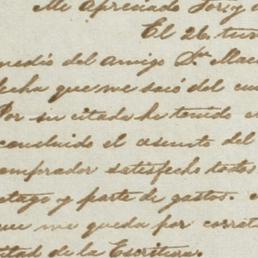 Mi Apreciado Jorge
El 26. tuv
medio del amigo Sr. Mac
fecha que me sacó del cu
Por su citada he tenido
concluido el asunto del
comprador satisfecho todos
etazgo y parte de gastos.
que me queda por corret
itad de la Escritura.